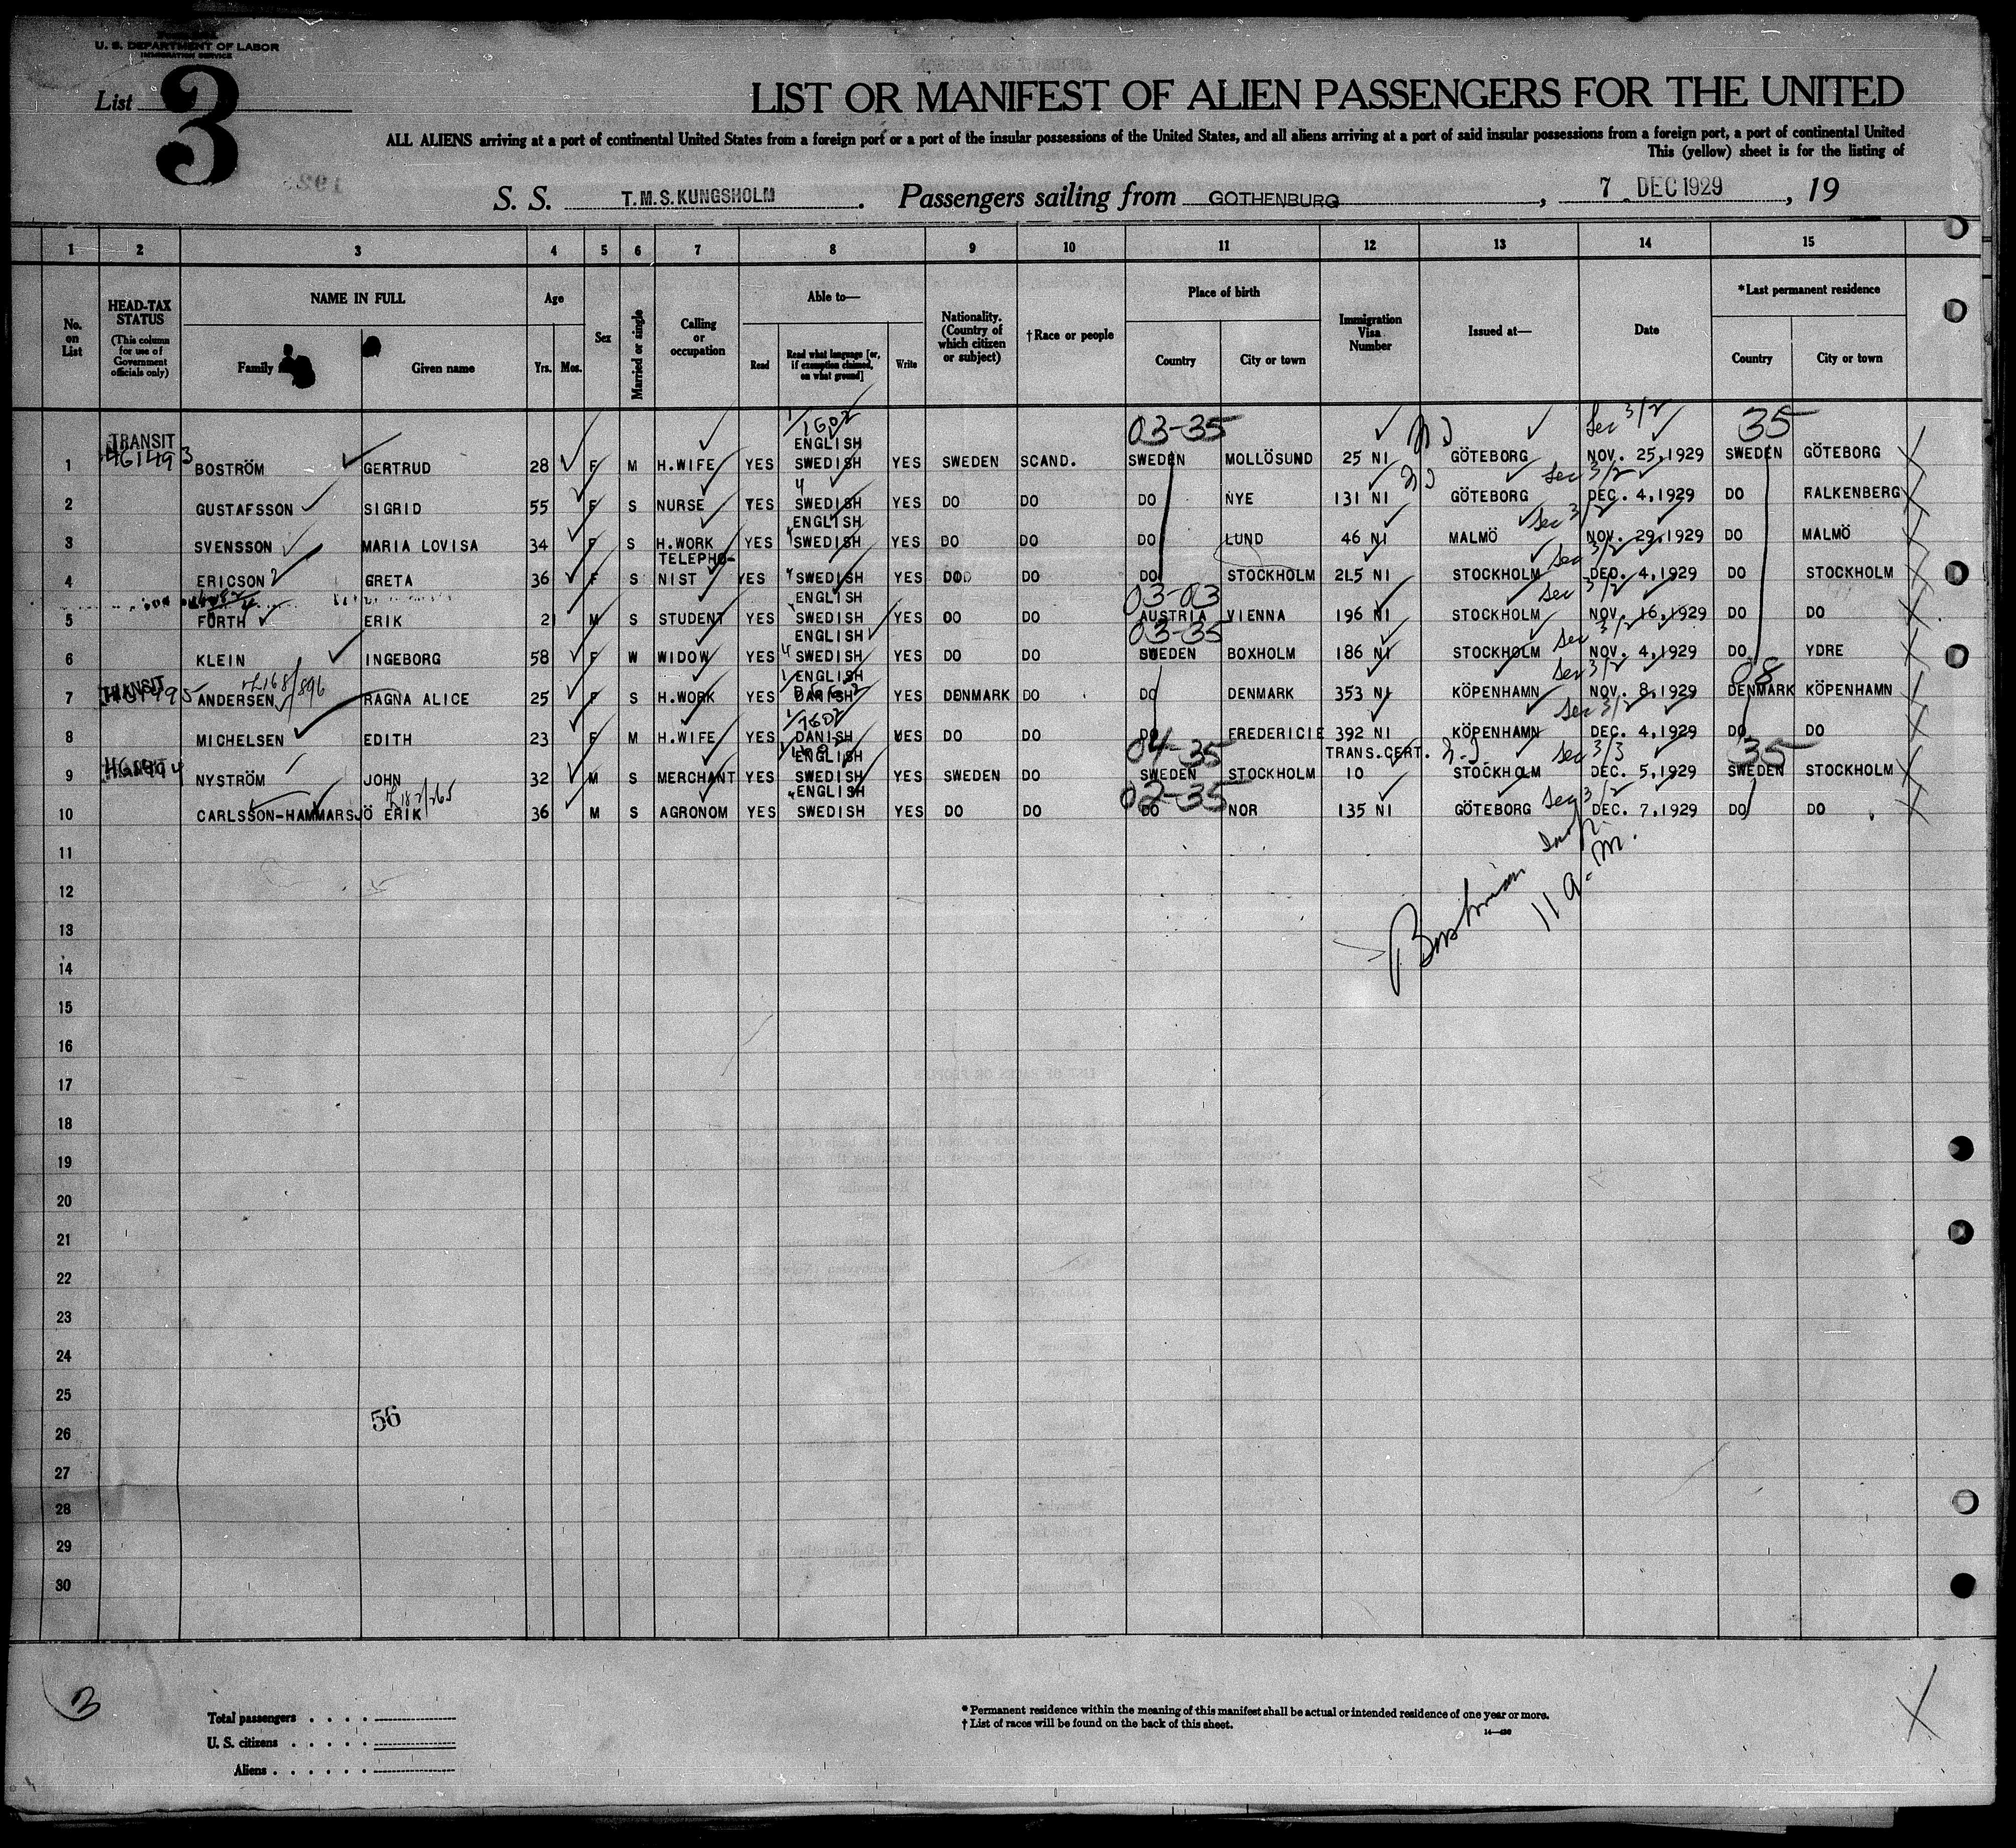 U. S. DEPARTMENT OF LABOR
IMMIGRATION SERVICE
List 3
LIST OR MANIFEST OF ALIEN PASSENGERS FOR THE UNITED
ALL ALIENS arriving at a port of continental United States from a foreign port or a port of the insular possessions of the United States, and all aliens arriving at a port of said insular possessions from a foreign port, a port of continental United
This (yellow) sheet is for the listing of
S. S. T.M.S. KUNGSHOLM. Passengers sailing from GOTHENBURG, 7 DEC 1929, 19
1 2 3 4 5 6 7 8 9 10 11 12 13 14 15
No. on List
HEAD-TAX STATUS
(This column for use of Government officials only)
NAME IN FULL
Family
Given name
Age
Yrs. Mos.
Sex
Married or single
Calling or occupation
Able to—
Read
Read what language [or, if exemption claimed, on what ground]
Write
Nationality. (Country of which citizen or subject)
†Race or people
Place of birth
Country
City or town
Immigration Visa Number
Issued at—
Date
*Last permanent residence
Country
City or town
1602 03-35 Sec 3/2 35
TRANSIT ENGLISH
1 461493 BOSTRÖM GERTRUD 28 F M H.WIFE YES SWEDISH YES SWEDEN SCAND. SWEDEN MOLLÖSUND 25 NI GÖTEBORG NOV. 25,1929 SWEDEN GÖTEBORG
Sec 3/2
2 GUSTAFSSON SIGRID 55 F S NURSE YES SWEDISH YES DO DO DO NYE 131 NI GÖTEBORG DEC. 4,1929 DO RALKENBERG
ENGLISH Sec 3/2
3 SVENSSON MARIA LOVISA 34 F S H.WORK YES SWEDISH YES DO DO DO LUND 46 NI MALMÖ NOV. 29,1929 DO MALMÖ
TELEPHO- Sec 3/2
4 ERICSON GRETA 36 F S NIST YES SWEDISH YES DO DO DO STOCKHOLM 215 NI STOCKHOLM DEC. 4,1929 DO STOCKHOLM
ENGLISH 03-03 Sec 3/2
5 FÜRTH ERIK 21 M S STUDENT YES SWEDISH YES DO DO AUSTRIA VIENNA 196 NI STOCKHOLM NOV. 16,1929 DO DO
ENGLISH 03-35 Sec 3/2
6 KLEIN INGEBORG 58 F W WIDOW YES SWEDISH YES DO DO SWEDEN BOXHOLM 186 NI STOCKHOLM NOV. 4,1929 DO YDRE
TRANSIT ENGLISH Sec 3/2 08
7 ANDERSEN RAGNA ALICE 25 F S H.WORK YES DANISH YES DENMARK DO DO DENMARK 353 NI KÖPENHAMN NOV. 8,1929 DENMARK KÖPENHAMN
1602 Sec 3/2
8 MICHELSEN EDITH 23 F M H.WIFE YES DANISH UES DO DO DO FREDERICIE 392 NI KÖPENHAMN DEC. 4,1929 DO DO
ENGLISH 04-35 TRANS.CERT. Sec 3/3 35
9 NYSTRÖM JOHN 32 M S MERCHANT YES SWEDISH YES SWEDEN DO SWEDEN STOCKHOLM 10 STOCKHOLM DEC. 5,1929 SWEDEN STOCKHOLM
ENGLISH 02-35 Sec 3/2
10 CARLSSON-HAMMARSJÖ ERIK 36 M S AGRONOM YES SWEDISH YES DO DO DO NOR 135 NI GÖTEBORG DEC. 7,1929 DO DO
11
12
11 a.m.
13
14
15
16
17
18
19
20
21
22
23
24
25
56
26
27
28
29
30
3
Total passengers
U. S. citizens
Aliens
* Permanent residence within the meaning of this manifest shall be actual or intended residence of one year or more.
† List of races will be found on the back of this sheet.